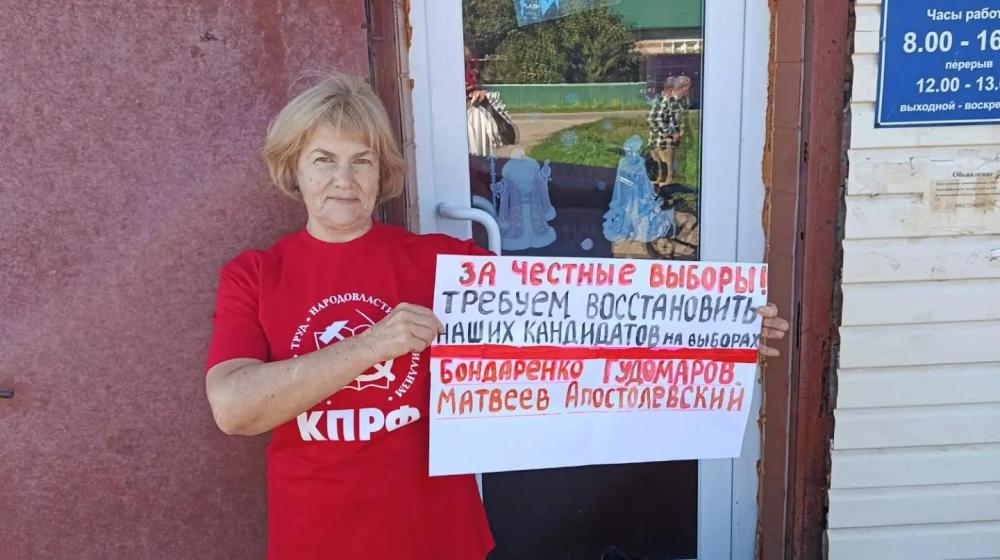 ЗА ЧЕСТНЫЕ ВЫБОРЫ!
ТРЕБУЕМ ВОССТАНОВИТЬ
НАШИХ КАНДИДАТОВ НА ВЫБОРАХ
БОНДАРЕНКО ГУДОМАРОВ
МАТВЕЕВ АПОСТОЛЕВСКИЙ
ТРУД · НАРОДОВЛАСТИ
КПРФ
Часы работ
8.00 - 16
перерыв
12.00 - 13.0
выходной - воскре
Объявление